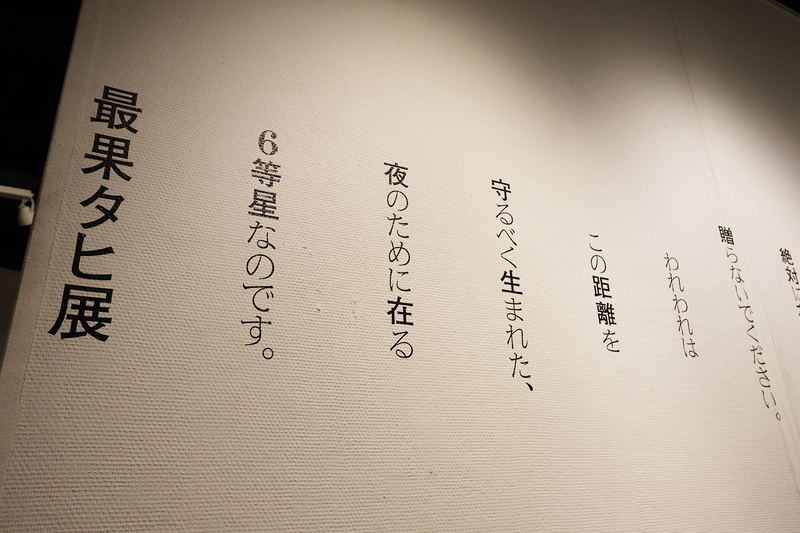 絶対に
贈らないでください。
われわれは
この距離を
守るべく生まれた、
夜のために在る
6等星なのです。
最果タヒ展